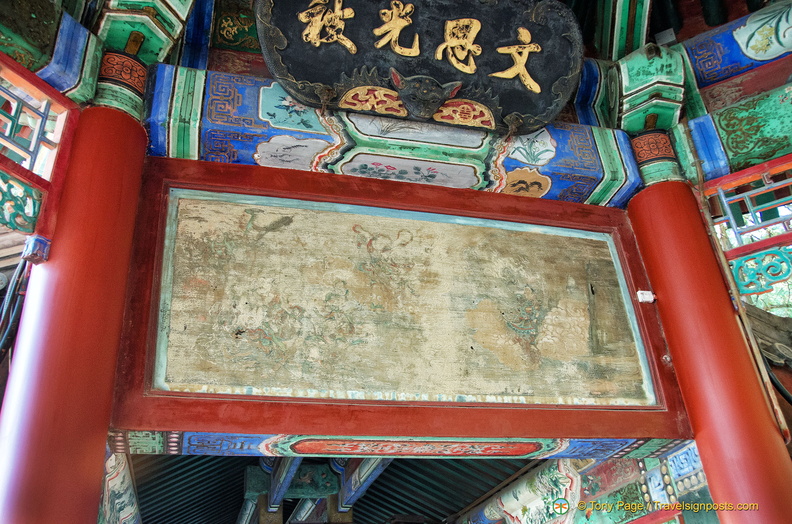 文思光被
© Tony Page / travelsignposts.com